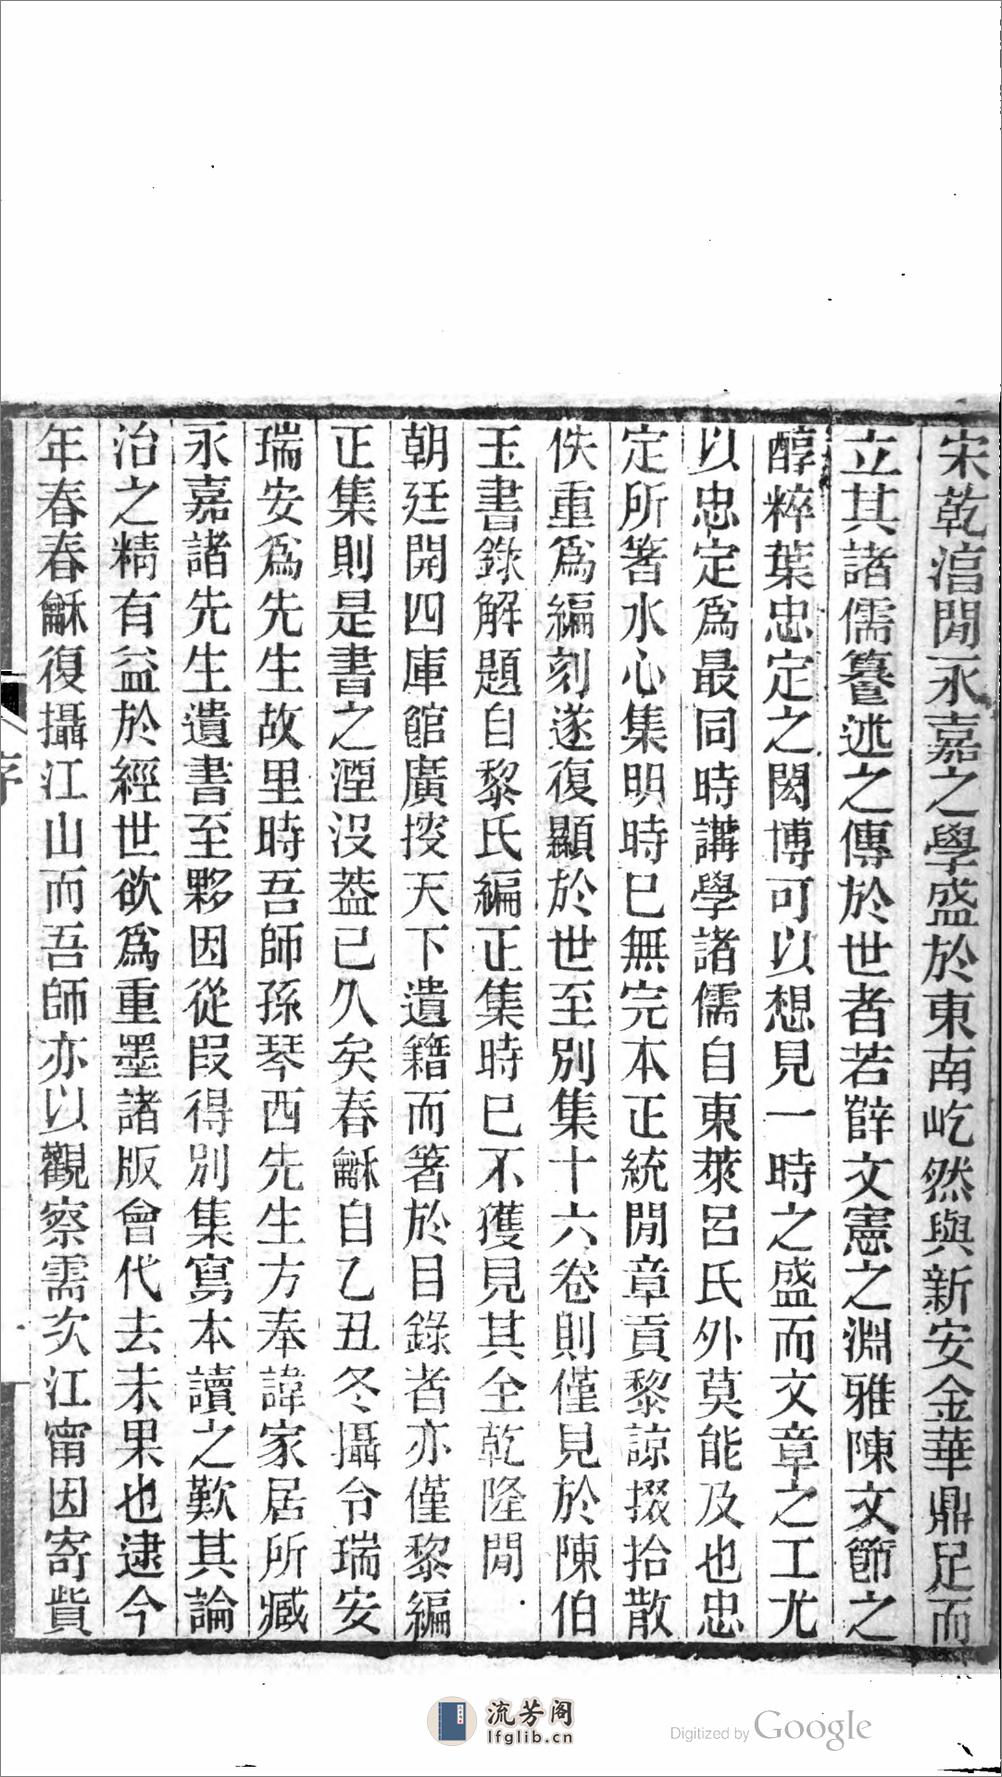 宋乾淳閒永嘉之學盛於東南屹然與新安金華鼎足而
立其諸儒籑述之傳於世者若薛文憲之淵雅陳文節之
醇粹葉忠定之閎博可以想見一時之盛而文章之工尤
以忠定爲最同時講學諸儒自東萊呂氏外莫能及也忠
定所箸水心集明時已無完本正統閒章貢黎諒掇拾散
佚重爲編刻遂復顯於世至別集十六卷則僅見於陳伯
玉書錄解題自黎氏編正集時已不獲見其全乾隆閒
朝廷開四庫館廣搜天下遺籍而箸於目錄者亦僅黎編
正集則是書之湮沒葢已久矣春龢自乙丑冬攝令瑞安
瑞安爲先生故里時吾師孫琴西先生方奉諱家居所臧
永嘉諸先生遺書至夥因從叚得別集寫本讀之歎其論
治之精有益於經世欲爲重墨諸版會代去未果也逮今
年春春龢復攝江山而吾師亦以觀察需次江甯因寄貲
序
流芳阁
lfglib.cn
Digitized by Google